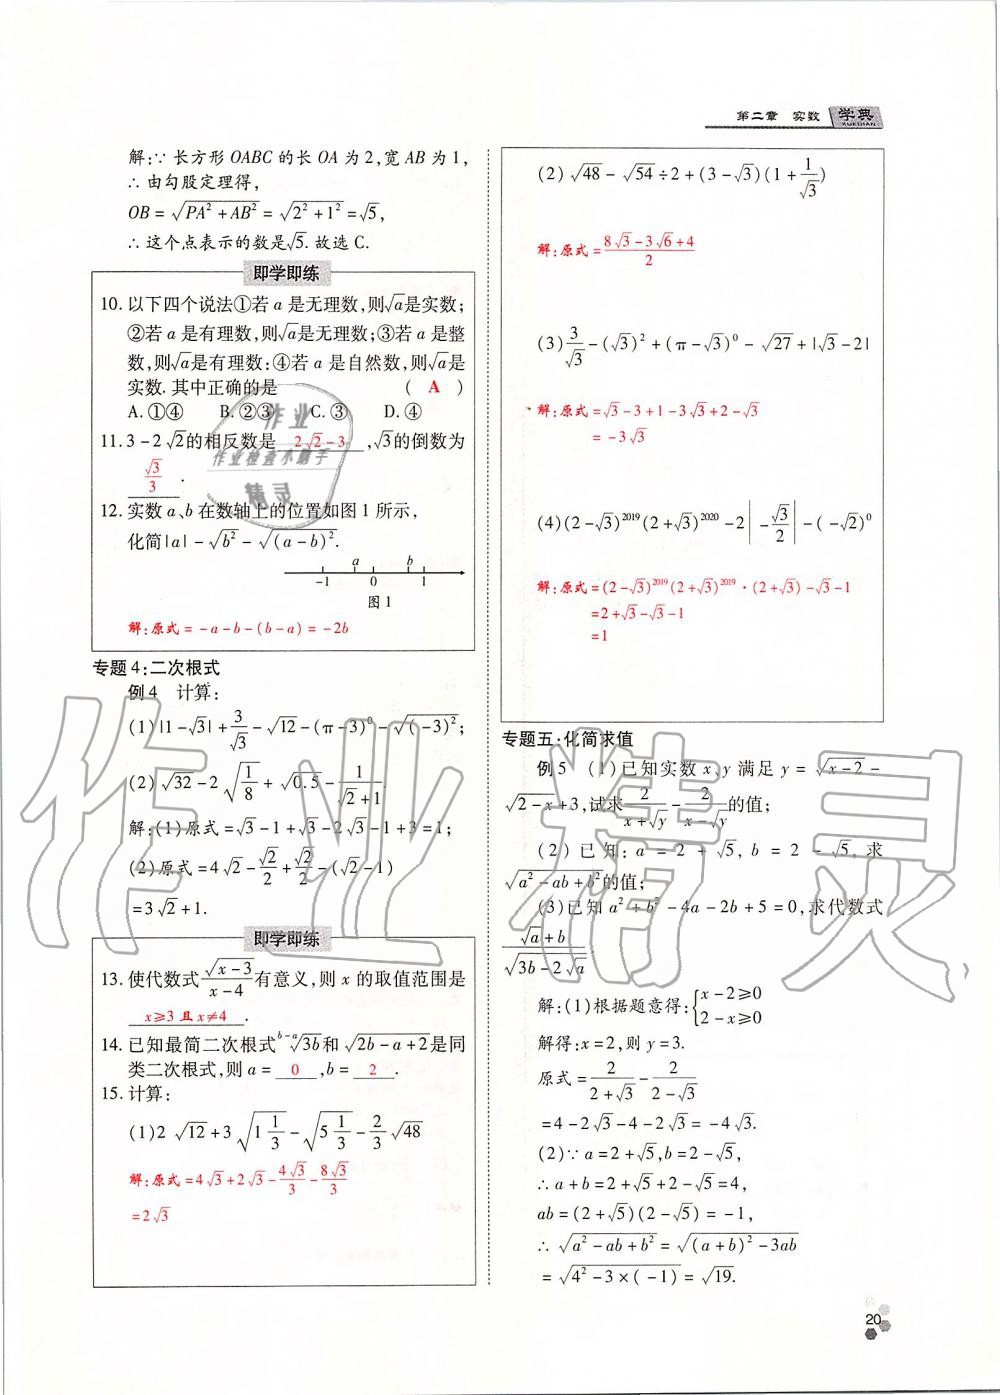 第二章 实数 学典
XUEDIAN
解:∵长方形 OABC 的长 OA 为 2,宽 AB 为 1,
∴由勾股定理得,
OB=√(PA²+AB²)=√(2²+1²)=√5,
∴这个点表示的数是√5. 故选 C.
即学即练
10. 以下四个说法①若 a 是无理数,则√a是实数;
②若 a 是有理数,则√a是无理数;③若 a 是整
数,则√a是有理数:④若 a 是自然数,则√a是
实数. 其中正确的是 ( A )
A. ①④ B. ②③ C. ③ D. ④
11. 3-2√2的相反数是 2√2-3 ,√3的倒数为
√3/3 .
12. 实数 a、b 在数轴上的位置如图 1 所示,
化简|a|-√b²-√(a-b)².
a b
-1 0 1
图 1
解:原式=-a-b-(b-a)=-2b
专题 4:二次根式
例 4 计算:
(1)|1-√3|+3/√3-√12-(π-3)⁰-√(-3)²;
(2)√32-2√(1/8)+√0.5-1/(√2+1)
解:(1)原式=√3-1+√3-2√3-1+3=1;
(2)原式=4√2-√2/2+√2/2-(√2-1)
=3√2+1.
即学即练
13. 使代数式√(x-3)/(x-4)有意义,则 x 的取值范围是
x≥3 且 x≠4 .
14. 已知最简二次根式 ᵇ⁻ᵃ√3b和√(2b-a+2)是同
类二次根式,则 a= 0 ,b= 2 .
15. 计算:
(1)2√12+3√(1 1/3)-√(5 1/3)-2/3√48
解:原式=4√3+2√3-4√3/3-8√3/3
=2√3
(2)√48-√54÷2+(3-√3)(1+1/√3)
解:原式=(8√3-3√6+4)/2
(3)3/√3-(√3)²+(π-√3)⁰-√27+|√3-2|
解:原式=√3-3+1-3√3+2-√3
=-3√3
(4)(2-√3)²⁰¹⁹(2+√3)²⁰²⁰-2|-√3/2|-(-√2)⁰
解:原式=(2-√3)²⁰¹⁹(2+√3)²⁰¹⁹·(2+√3)-√3-1
=2+√3-√3-1
=1
专题五·化简求值
例 5 (1)已知实数 x、y 满足 y=√(x-2)-
√(2-x)+3,试求2/(x+√y)-2/(x-√y)的值;
(2)已知:a=2+√5,b=2-√5,求
√(a²-ab+b²)的值;
(3)已知 a²+b²-4a-2b+5=0,求代数式
(√a+b)/√(3b-2√a)
解:(1)根据题意得:{x-2≥0
2-x≥0
解得:x=2,则 y=3.
原式=2/(2+√3)-2/(2-√3)
=4-2√3-4-2√3=-4√3.
(2)∵a=2+√5,b=2-√5,
∴a+b=2+√5+2-√5=4,
ab=(2+√5)(2-√5)=-1,
∴√(a²-ab+b²)=√((a+b)²-3ab)
=√(4²-3×(-1))=√19.
20
作业
作业检查小助手
精灵
作业精灵